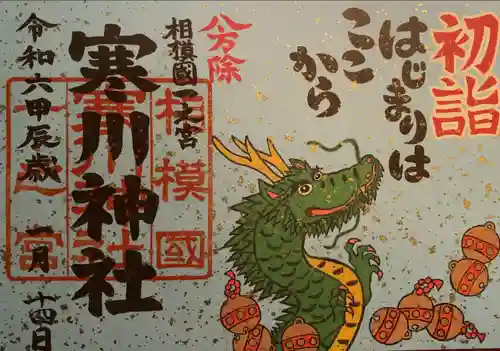 初詣
はじまりは
ここ
から
八方除
相模國一之宮
寒川神社
相模國
一之宮
寒川神社
令和六甲辰歳
一月
十四日